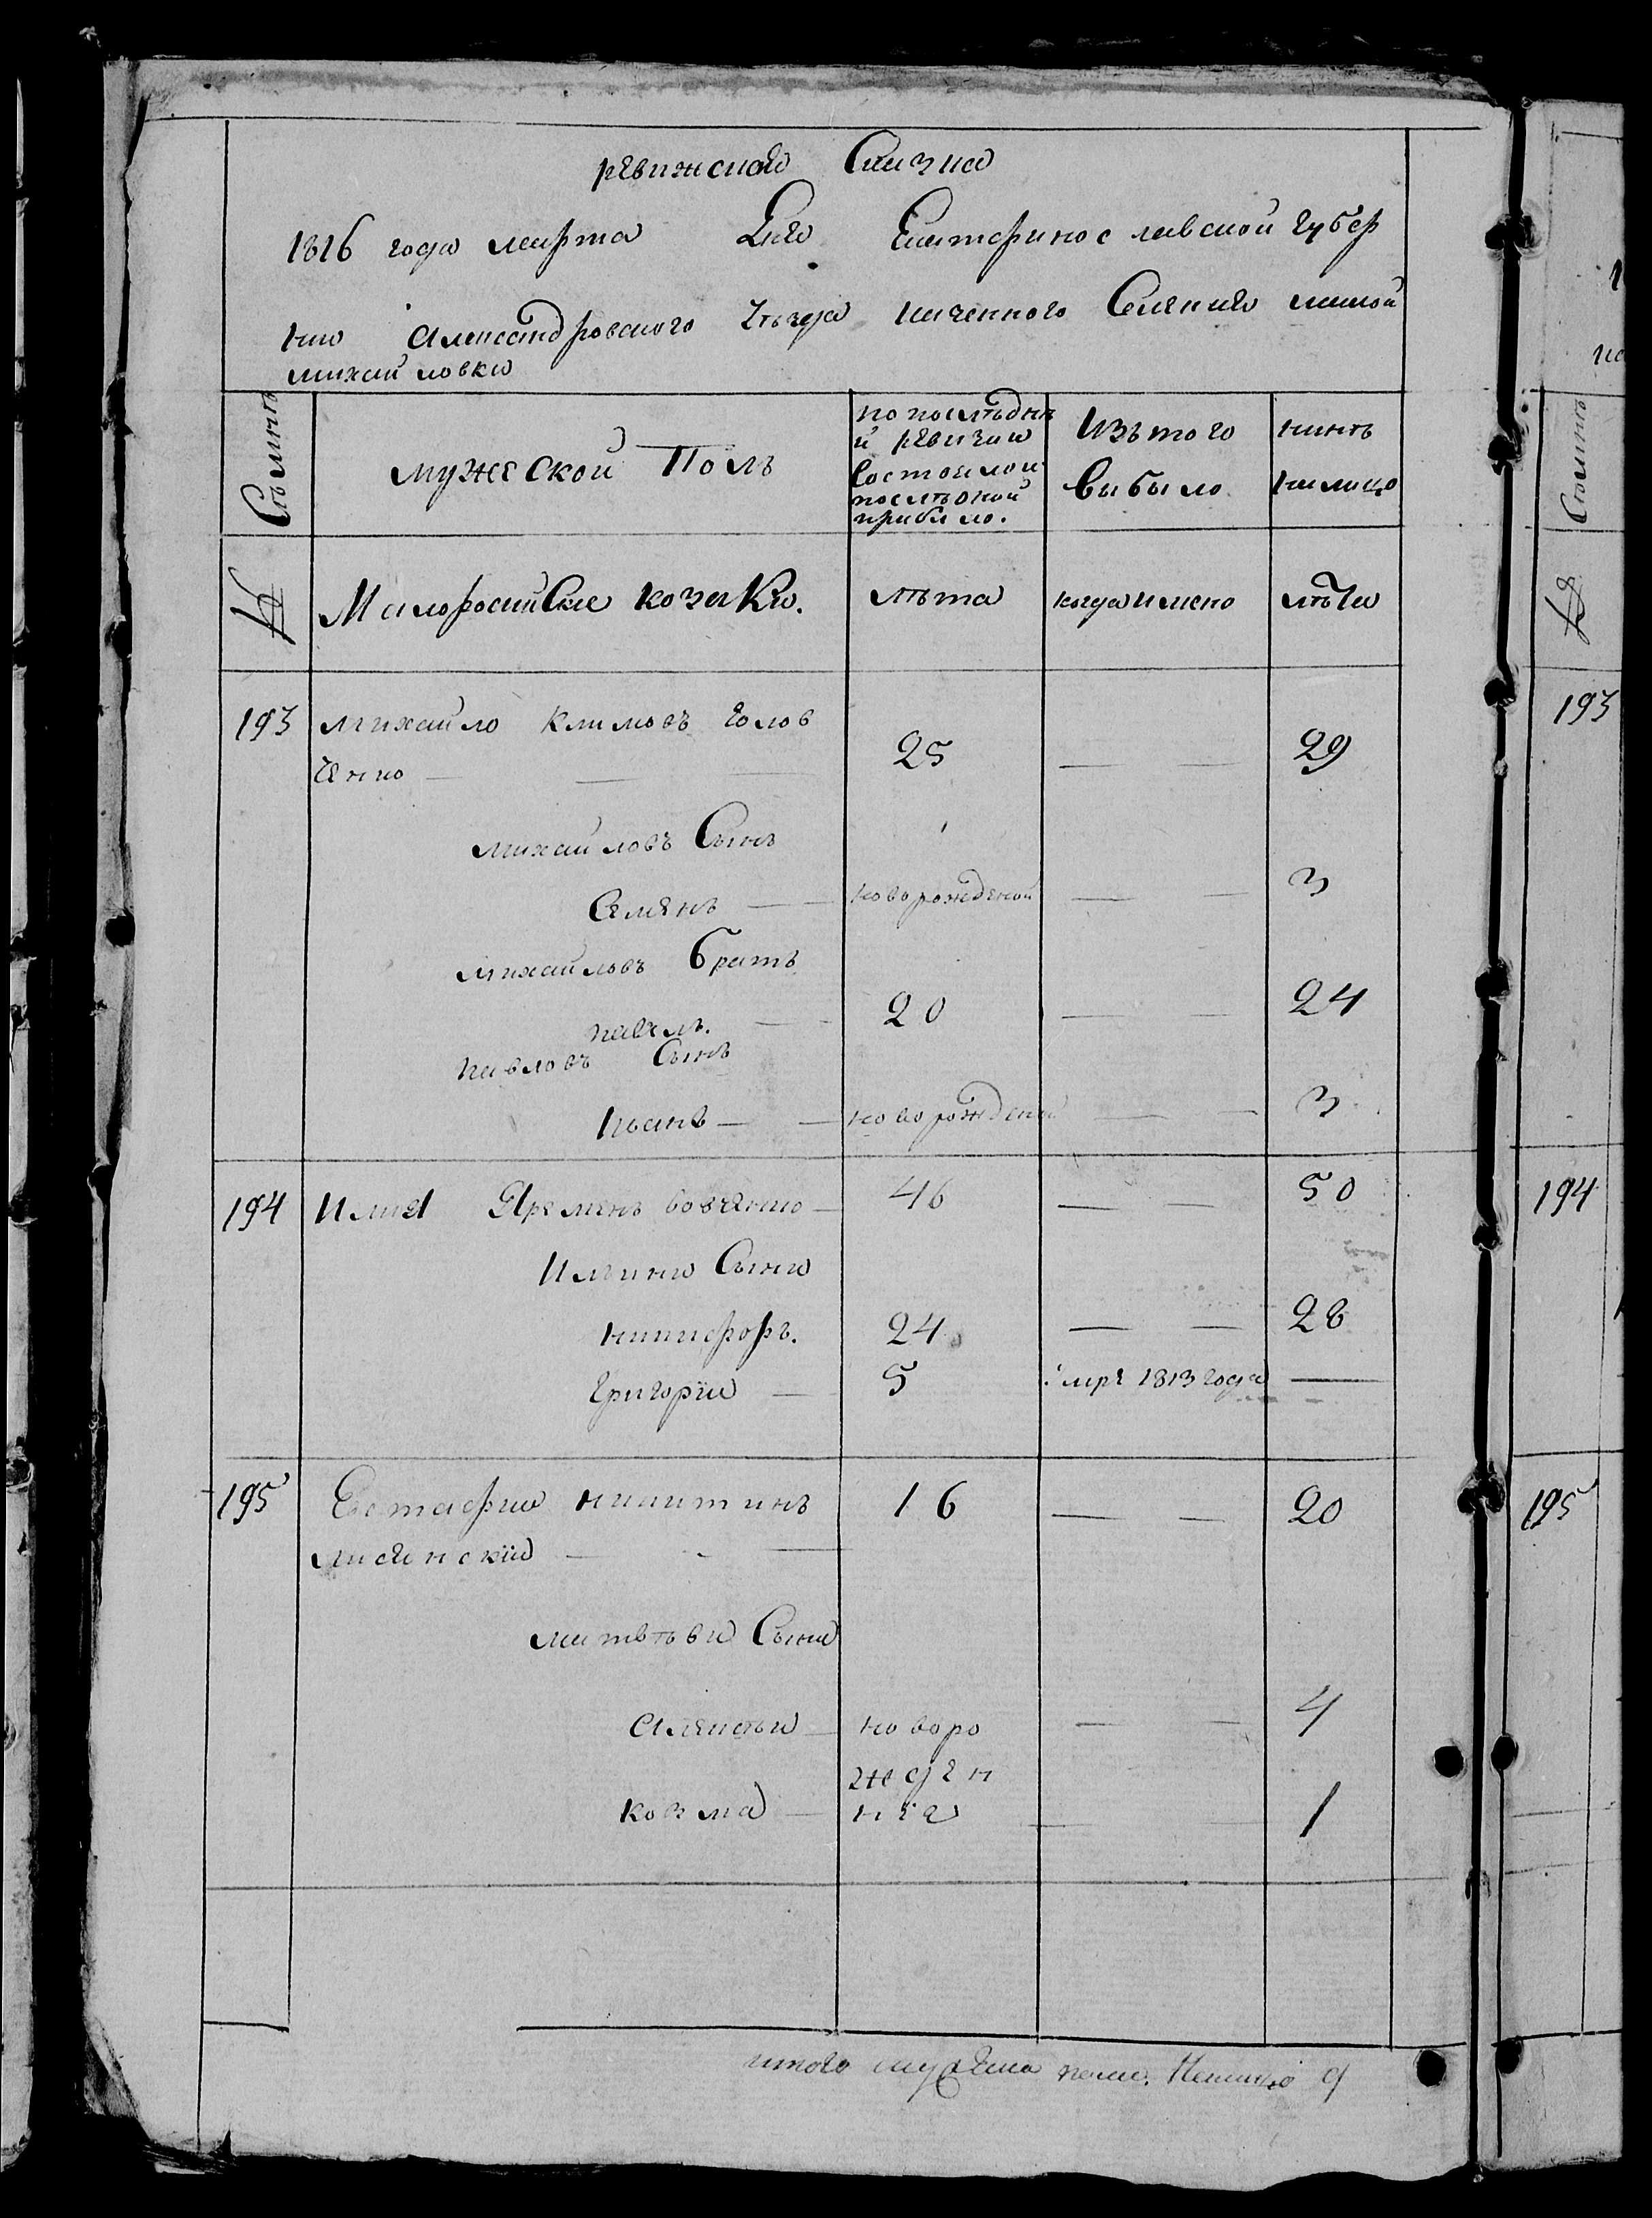 ревижская Сказка
1816 года марта Дня Екатеринославской губер
нии Александровского уѣзда казенного Селения малой
михайловки
Съмьитъ
мужеской Полъ
по последне
й ревизии
Состояло и
послѣ оной
прибыло.
Изъ того
выбыло
нинѣ
налицо
№
Малоросийские козаки.
лѣта
когда имено
лѣта
193 михайло климовъ голов
ченко — — — 25 — — 29
михайловъ Сынъ
Семенъ — — новорожденой — — 3
михайловъ братъ
павелъ. — — 20 — — 24
павловъ Сынъ
Иванъ — — новорождений — — 3
194 Илия Яременъ вовченко — 46 — — 50
Ильини Сыни
никифоръ. 24 — — 28
григории — 5 умре 1813 года —
195 Евстафии никитинъ 16 — — 20
лисенский — - —
матвѣви Сыни
Алексѣи — новоро — — 4
жден
козма — ние — — 1
итого мужеска пола. Налицо 9
193
194
195